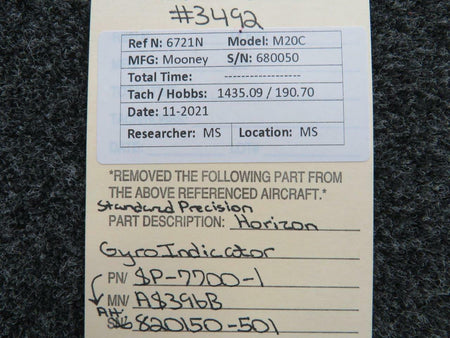 #3492
Ref N: 6721N Model: M20C
MFG: Mooney S/N: 680050
Total Time: -----------------
Tach / Hobbs: 1435.09 / 190.70
Date: 11-2021
Researcher: MS Location: MS
*REMOVED THE FOLLOWING PART FROM
THE ABOVE REFERENCED AIRCRAFT.*
Standard Precision
PART DESCRIPTION: Horizon
Gyro Indicator
PN/ SP-7700-1
MN/ AS396B
Alt. 820150-501